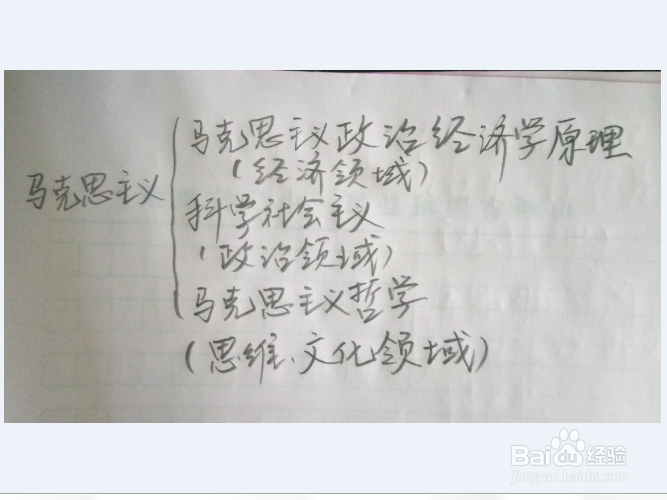 马克思主义
马克思主义政治经济学原理
(经济领域)
科学社会主义
(政治领域)
马克思主义哲学
(思维、文化领域)
Baidu经验
jingyan.baidu.com